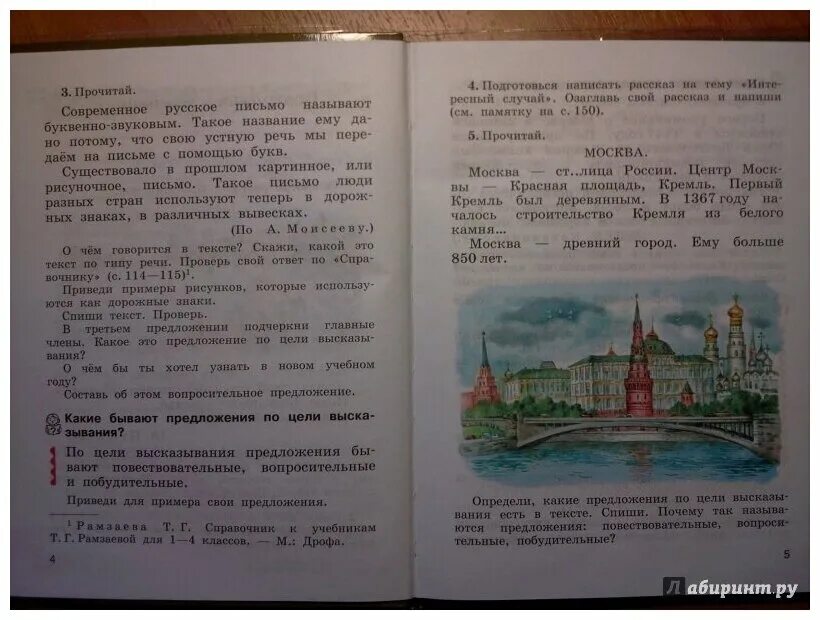 3. Прочитай.
Современное русское письмо называют
буквенно-звуковым. Такое название ему да-
но потому, что свою устную речь мы пере-
даём на письме с помощью букв.
Существовало в прошлом картинное, или
рисуночное, письмо. Такое письмо люди
разных стран используют теперь в дорож-
ных знаках, в различных вывесках.
(По А. Моисееву.)
О чём говорится в тексте? Скажи, какой это
текст по типу речи. Проверь свой ответ по «Спра-
вочнику» (с. 114—115)¹.
Приведи примеры рисунков, которые использу-
ются как дорожные знаки.
Спиши текст. Проверь.
В третьем предложении подчеркни главные
члены. Какое это предложение по цели высказы-
вания?
О чём бы ты хотел узнать в новом учебном
году?
Составь об этом вопросительное предложение.
Какие бывают предложения по цели выска-
зывания?
По цели высказывания предложения бы-
вают повествовательные, вопросительные
и побудительные.
Приведи для примера свои предложения.
¹ Рамзаева Т. Г. Справочник к учебникам
Т. Г. Рамзаевой для 1—4 классов, — М.: Дрофа.
4
4. Подготовься написать рассказ на тему «Инте-
ресный случай». Озаглавь свой рассказ и напиши
(см. памятку на с. 150).
5. Прочитай.
МОСКВА.
Москва — ст..лица России. Центр Моск-
вы — Красная площадь, Кремль. Первый
Кремль был деревянным. В 1367 году на-
чалось строительство Кремля из белого
камня...
Москва — древний город. Ему больше
850 лет.
Определи, какие предложения по цели высказы-
вания есть в тексте. Спиши. Почему так называ-
ются предложения: повествовательные, вопроси-
тельные, побудительные?
5
Лабиринт.ру